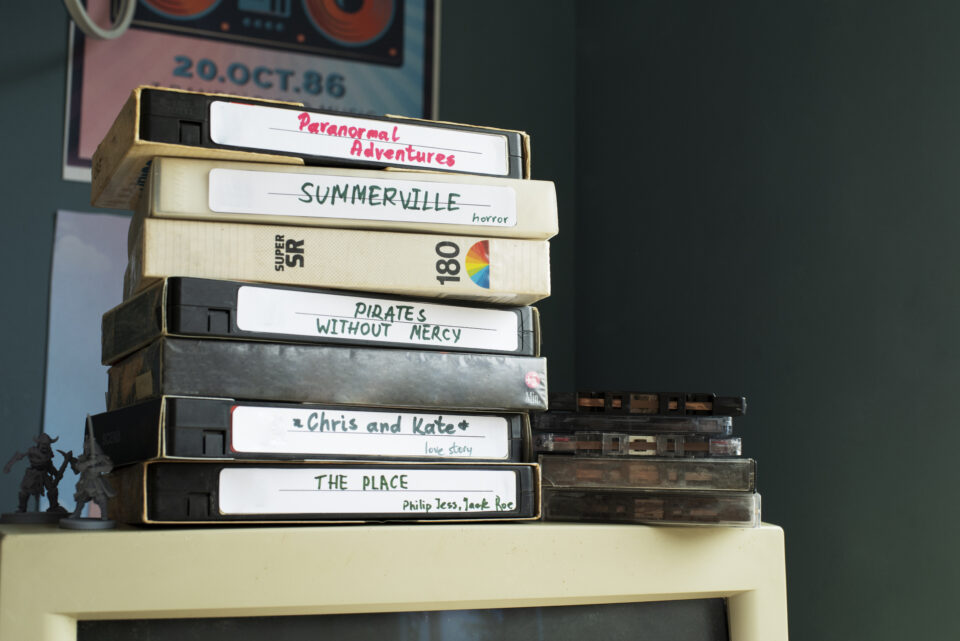 20.OCT.86
Paranormal
Adventures
SUMMERVILLE
horror
SUPER
SR
180
PIRATES
WITHOUT MERCY
Chris and Kate
love story
THE PLACE
Philip Jess, Jack Roe